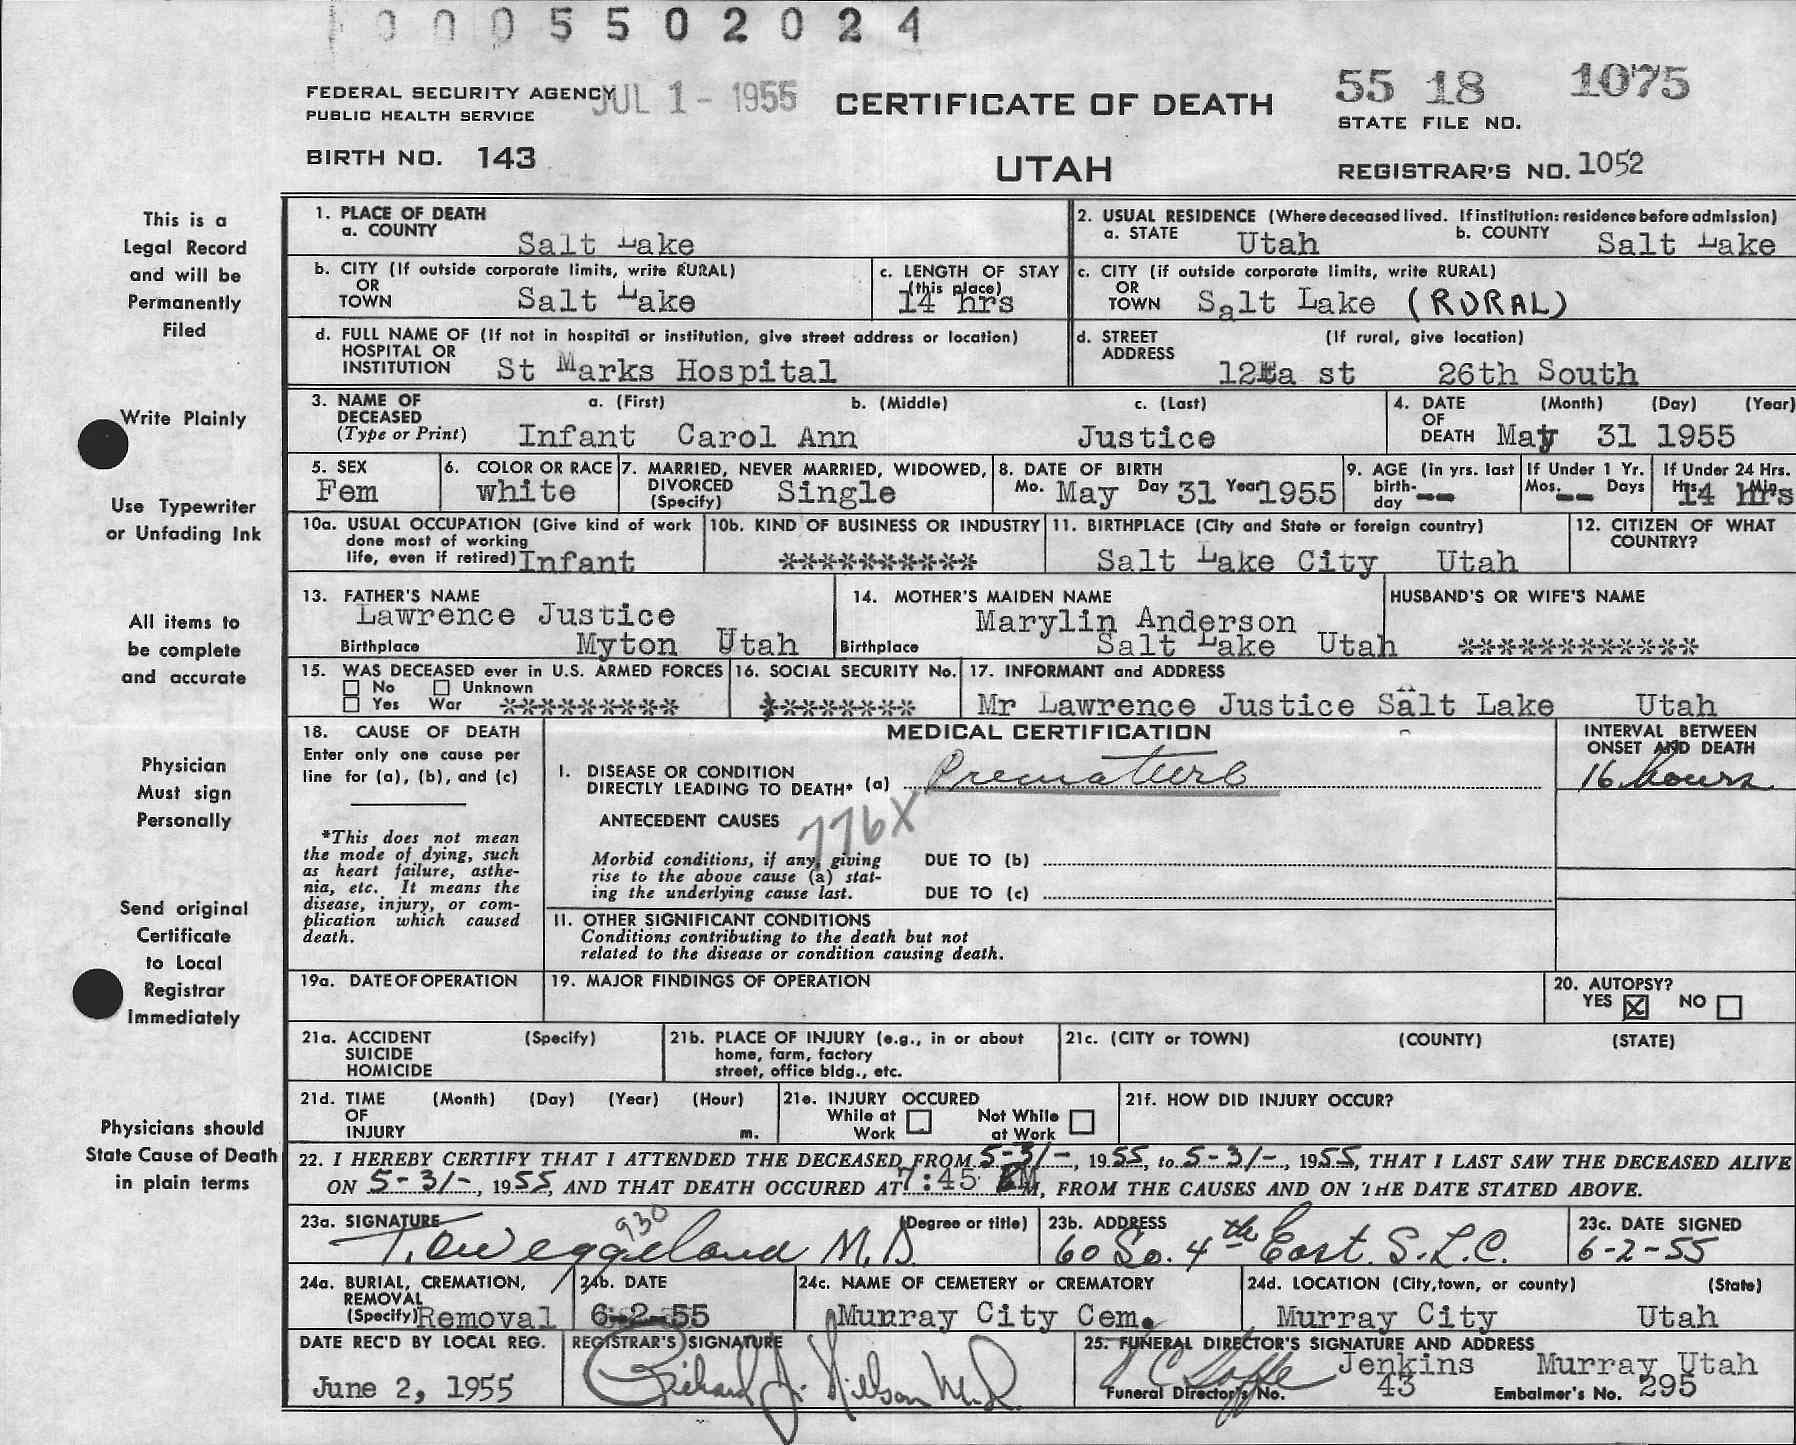 0005502024
FEDERAL SECURITY AGENCY
PUBLIC HEALTH SERVICE
JUL 1 - 1955
CERTIFICATE OF DEATH
55 18 1075
STATE FILE NO.
BIRTH NO. 143
UTAH
REGISTRAR'S NO. 1052
This is a
Legal Record
and will be
Permanently
Filed
Write Plainly
Use Typewriter
or Unfading Ink
All items to
be complete
and accurate
Physician
Must sign
Personally
Send original
Certificate
to Local
Registrar
Immediately
Physicians should
State Cause of Death
in plain terms
1. PLACE OF DEATH
a. COUNTY Salt Lake
2. USUAL RESIDENCE (Where deceased lived. If institution: residence before admission)
a. STATE Utah b. COUNTY Salt Lake
b. CITY (If outside corporate limits, write RURAL)
OR
TOWN Salt Lake
c. LENGTH OF STAY
(this place)
14 hrs
c. CITY (if outside corporate limits, write RURAL)
OR
TOWN Salt Lake (RURAL)
d. FULL NAME OF (If not in hospital or institution, give street address or location)
HOSPITAL OR
INSTITUTION St Marks Hospital
d. STREET (If rural, give location)
ADDRESS
st 26th South
3. NAME OF a. (First) b. (Middle) c. (Last)
DECEASED
(Type or Print) Infant Carol Ann Justice
4. DATE (Month) (Day) (Year)
OF
DEATH May 31 1955
5. SEX
Fem
6. COLOR OR RACE
white
7. MARRIED, NEVER MARRIED, WIDOWED,
DIVORCED
(Specify) Single
8. DATE OF BIRTH
Mo. May Day 31 Year 1955
9. AGE (in yrs. last
birth-
day --
If Under 1 Yr.
Mos. -- Days
If Under 24 Hrs.
Hrs. Min.
14 hrs
10a. USUAL OCCUPATION (Give kind of work
done most of working
life, even if retired) Infant
10b. KIND OF BUSINESS OR INDUSTRY
**********
11. BIRTHPLACE (City and State or foreign country)
Salt Lake City Utah
12. CITIZEN OF WHAT
COUNTRY?
13. FATHER'S NAME
Lawrence Justice
Birthplace Myton Utah
14. MOTHER'S MAIDEN NAME
Marylin Anderson
Birthplace Salt Lake Utah
HUSBAND'S OR WIFE'S NAME
************
15. WAS DECEASED ever in U.S. ARMED FORCES
No Unknown
Yes War *********
16. SOCIAL SECURITY No.
********
17. INFORMANT and ADDRESS
Mr Lawrence Justice Salt Lake Utah
18. CAUSE OF DEATH
Enter only one cause per
line for (a), (b), and (c)
*This does not mean
the mode of dying, such
as heart failure, asthe-
nia, etc. It means the
disease, injury, or com-
plication which caused
death.
MEDICAL CERTIFICATION
I. DISEASE OR CONDITION
DIRECTLY LEADING TO DEATH* (a) Premature
INTERVAL BETWEEN
ONSET AND DEATH
16 hours
ANTECEDENT CAUSES
776X
Morbid conditions, if any, giving
rise to the above cause (a) stat-
ing the underlying cause last.
DUE TO (b)
DUE TO (c)
II. OTHER SIGNIFICANT CONDITIONS
Conditions contributing to the death but not
related to the disease or condition causing death.
19a. DATE OF OPERATION
19. MAJOR FINDINGS OF OPERATION
20. AUTOPSY?
YES X NO
21a. ACCIDENT (Specify)
SUICIDE
HOMICIDE
21b. PLACE OF INJURY (e.g., in or about
home, farm, factory
street, office bldg., etc.
21c. (CITY or TOWN) (COUNTY) (STATE)
21d. TIME (Month) (Day) (Year) (Hour)
OF
INJURY m.
21e. INJURY OCCURED
While at
Work
Not While
at Work
21f. HOW DID INJURY OCCUR?
22. I HEREBY CERTIFY THAT I ATTENDED THE DECEASED FROM 5-31-, 1955, to 5-31-, 1955, THAT I LAST SAW THE DECEASED ALIVE
ON 5-31-, 1955, AND THAT DEATH OCCURED AT 7:45 PM, FROM THE CAUSES AND ON THE DATE STATED ABOVE.
23a. SIGNATURE (Degree or title)
930
M.D.
23b. ADDRESS
60 So. 4th East. S.L.C.
23c. DATE SIGNED
6-2-55
24a. BURIAL, CREMATION,
REMOVAL
(Specify) Removal
24b. DATE
6-2-55
24c. NAME OF CEMETERY or CREMATORY
Murray City Cem.
24d. LOCATION (City, town, or county) (State)
Murray City Utah
DATE REC'D BY LOCAL REG.
June 2, 1955
REGISTRAR'S SIGNATURE
Richard J. Nillson M.D.
25. FUNERAL DIRECTOR'S SIGNATURE AND ADDRESS
Jenkins Murray Utah
Funeral Director's No. 43 Embalmer's No. 295